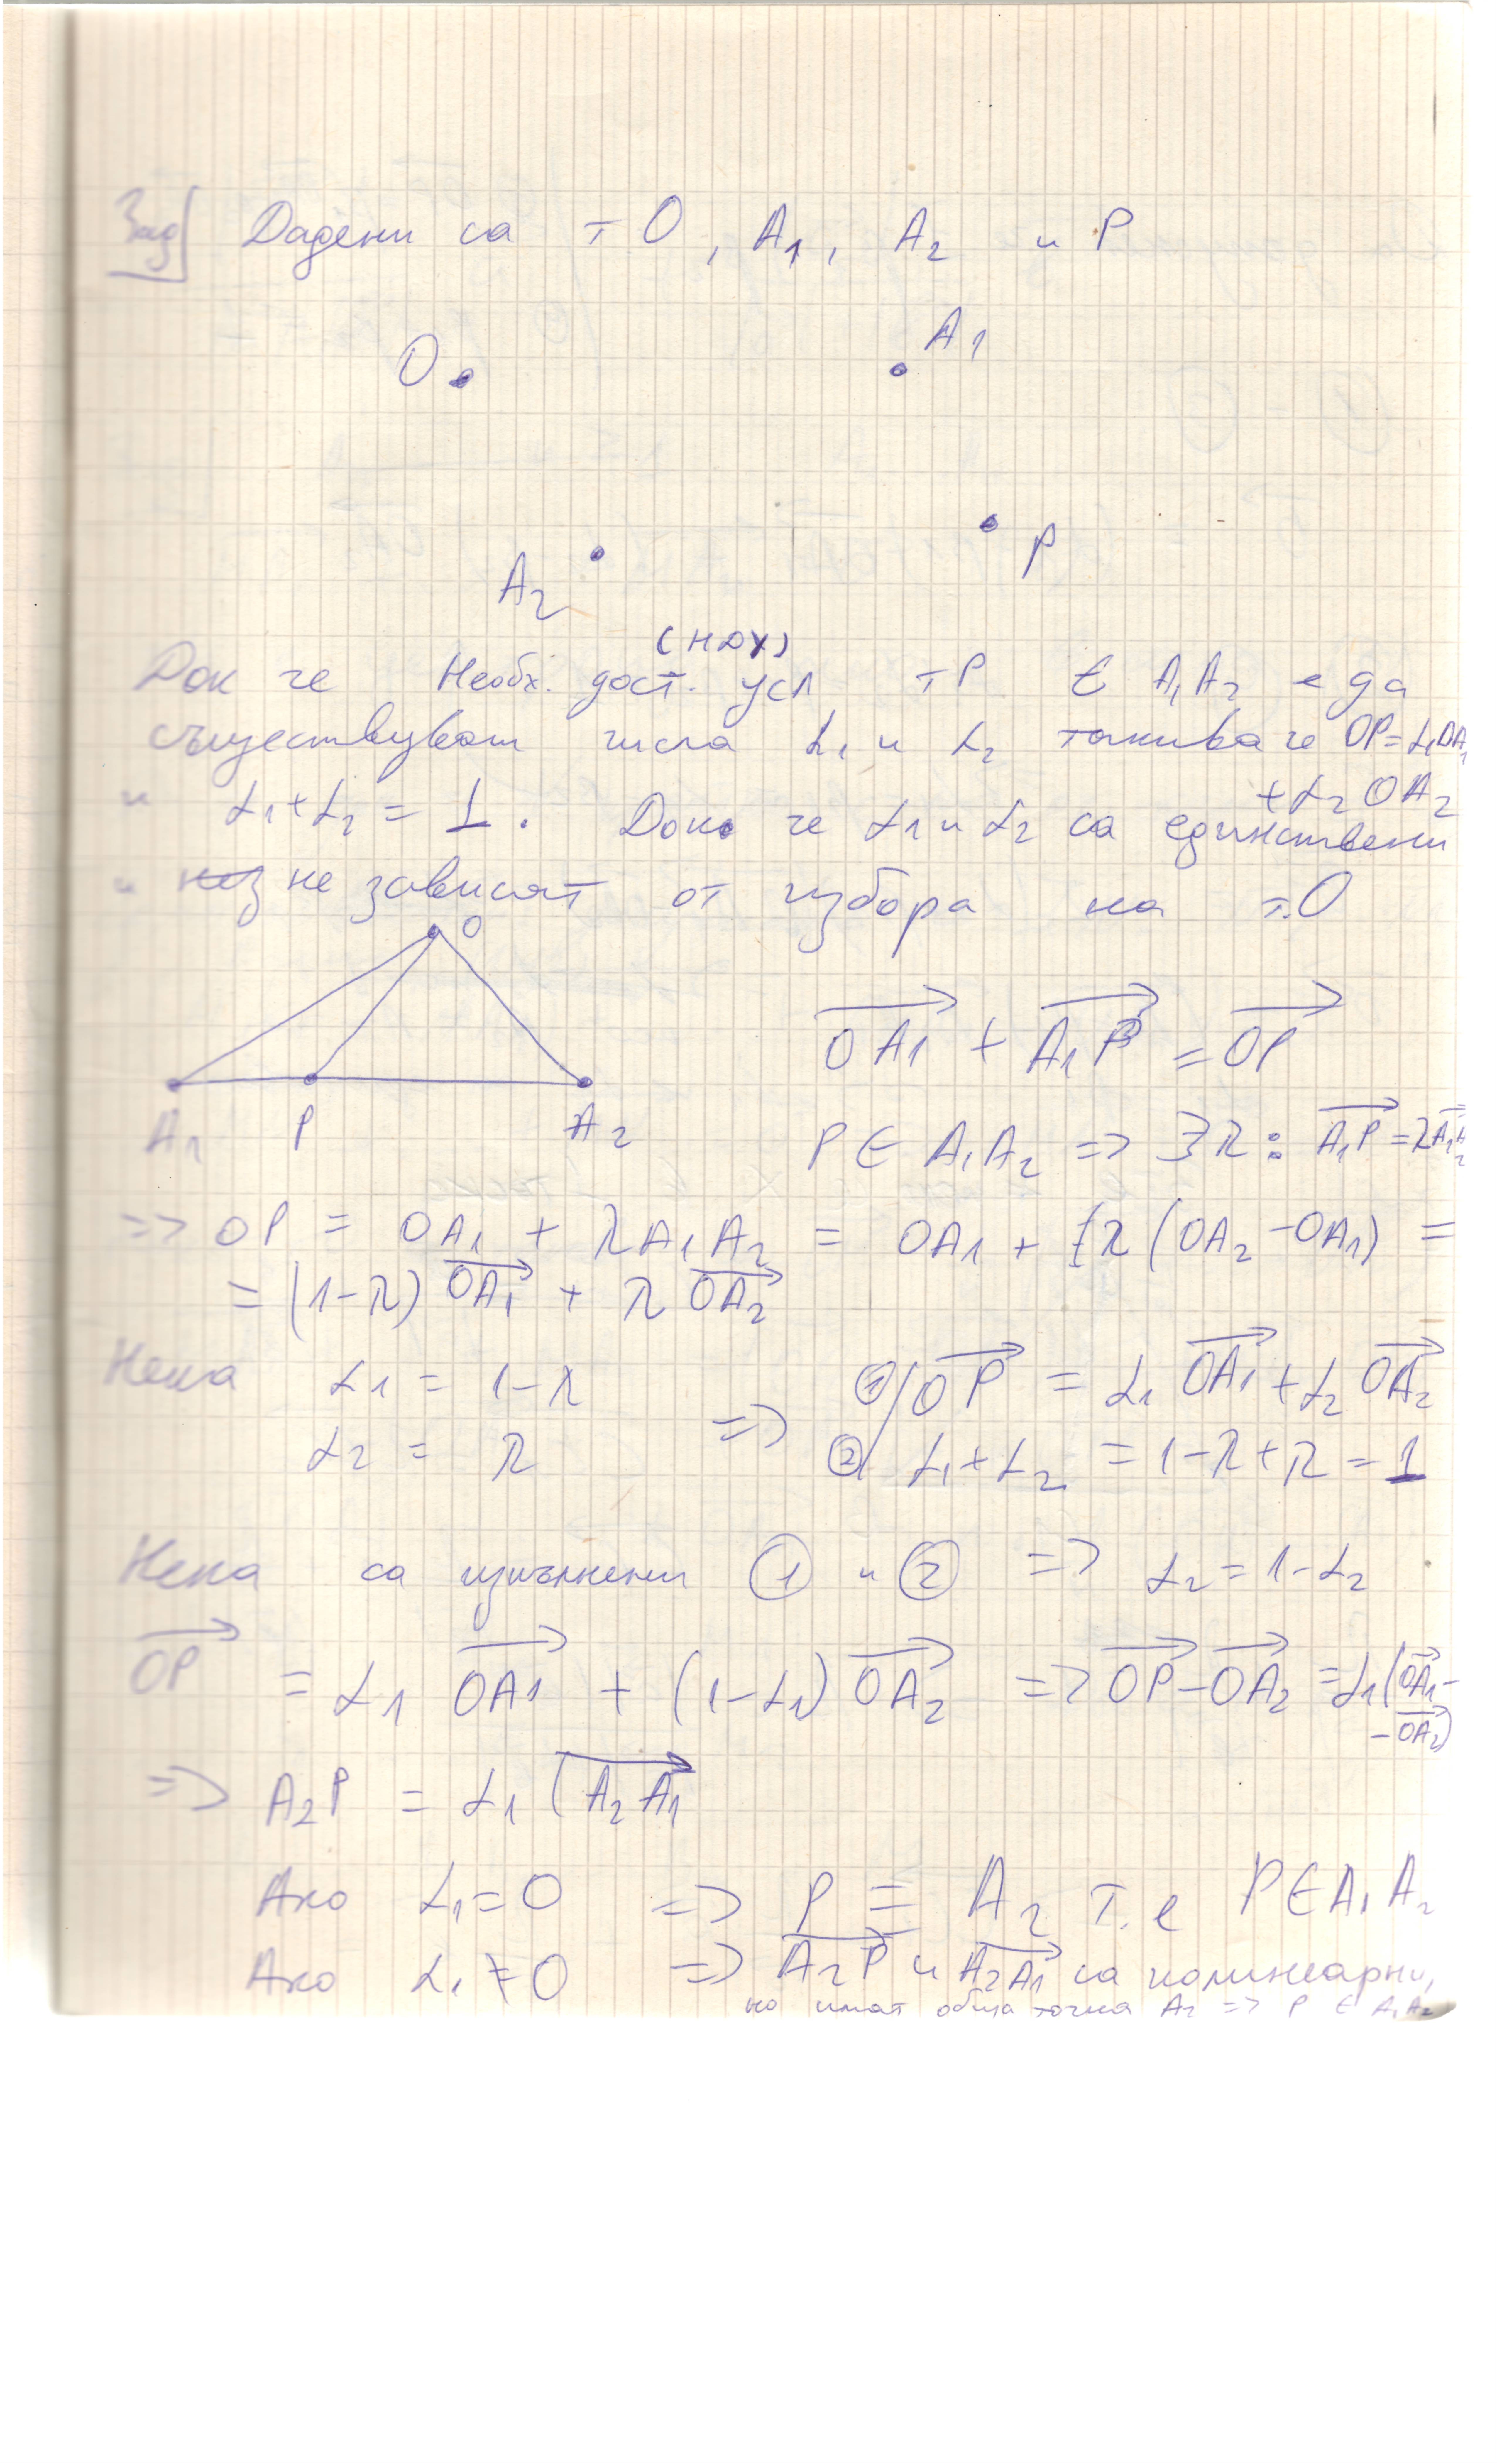 Зад Дадени са т O, A1, A2 и P
O A1
A2 P
(НДУ)
Док че Необх. дост. усл тP ∈ A1A2 е да
съществуват числа α1 и α2 такива че OP=α1OA1
+α2OA2
и α1+α2 = 1. Док. че α1 и α2 са единствени
и не зависят от избора на т.O
O
A1 P A2
OA1 + A1P = OP
P ∈ A1A2 => ∃λ : A1P = λA1A2
=> OP = OA1 + λA1A2 = OA1 + λ(OA2 - OA1) =
= (1-λ) OA1 + λ OA2
Нека α1 = 1-λ => 1/ OP = α1 OA1 + α2 OA2
α2 = λ 2/ α1+α2 = 1-λ+λ = 1
Нека са изпълнени 1 и 2 => α2 = 1-α2
OP = α1 OA1 + (1-α1) OA2 => OP-OA2 = α1(OA1-
-OA2)
=> A2P = α1 (A2A1
Ако α1=0 => P ≡ A2 т.е P∈A1A2
Ако α1≠0 => A2P и A2A1 са колинеарни,
но имат обща точка A2 => P ∈ A1A2